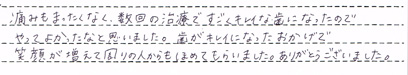 痛みもまったくなく、数回の治療ですごくキレイな歯になったので
やってよかったなと思いました。歯がキレイになったおかげで
笑顔が増えて周りの人からもほめてもらいました。ありがとうございました。